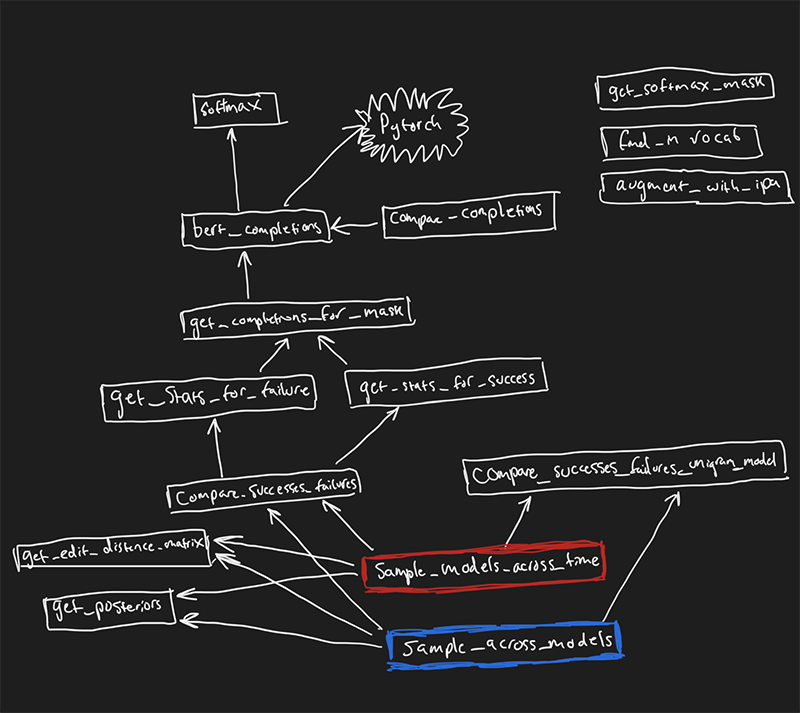 softmax
Pytorch
get_softmax_mask
find_in vocab
augment_with_ipa
bert_completions
compare_completions
get_completions_for_mask
get_stats_for_failure
get_stats_for_success
compare_successes_failures
compare_successes_failures_unigram_model
get_edit_distence_matrix
sample_models_across_time
get_posteriors
sample_across_models